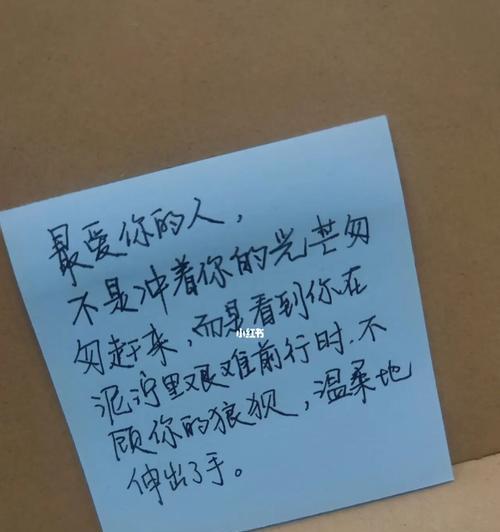 最爱你的人，
不是冲着你的光芒匆
匆赶来，而是看到你在
小红书
泥泞里艰难前行时，不
顾你的狼狈，温柔地
伸出了手。